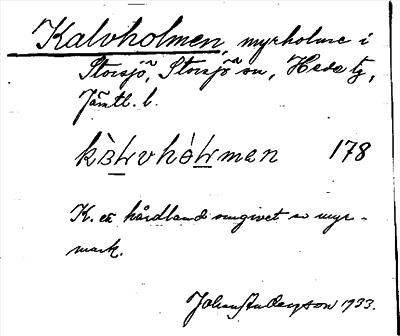 Kalvholmen, myrholme i
Storsjö, Storsjö sn, Hede tg,
Jämtl. l.
178
K. är hårdland omgivet av myr-
mark.
Johan Andersson 1933.